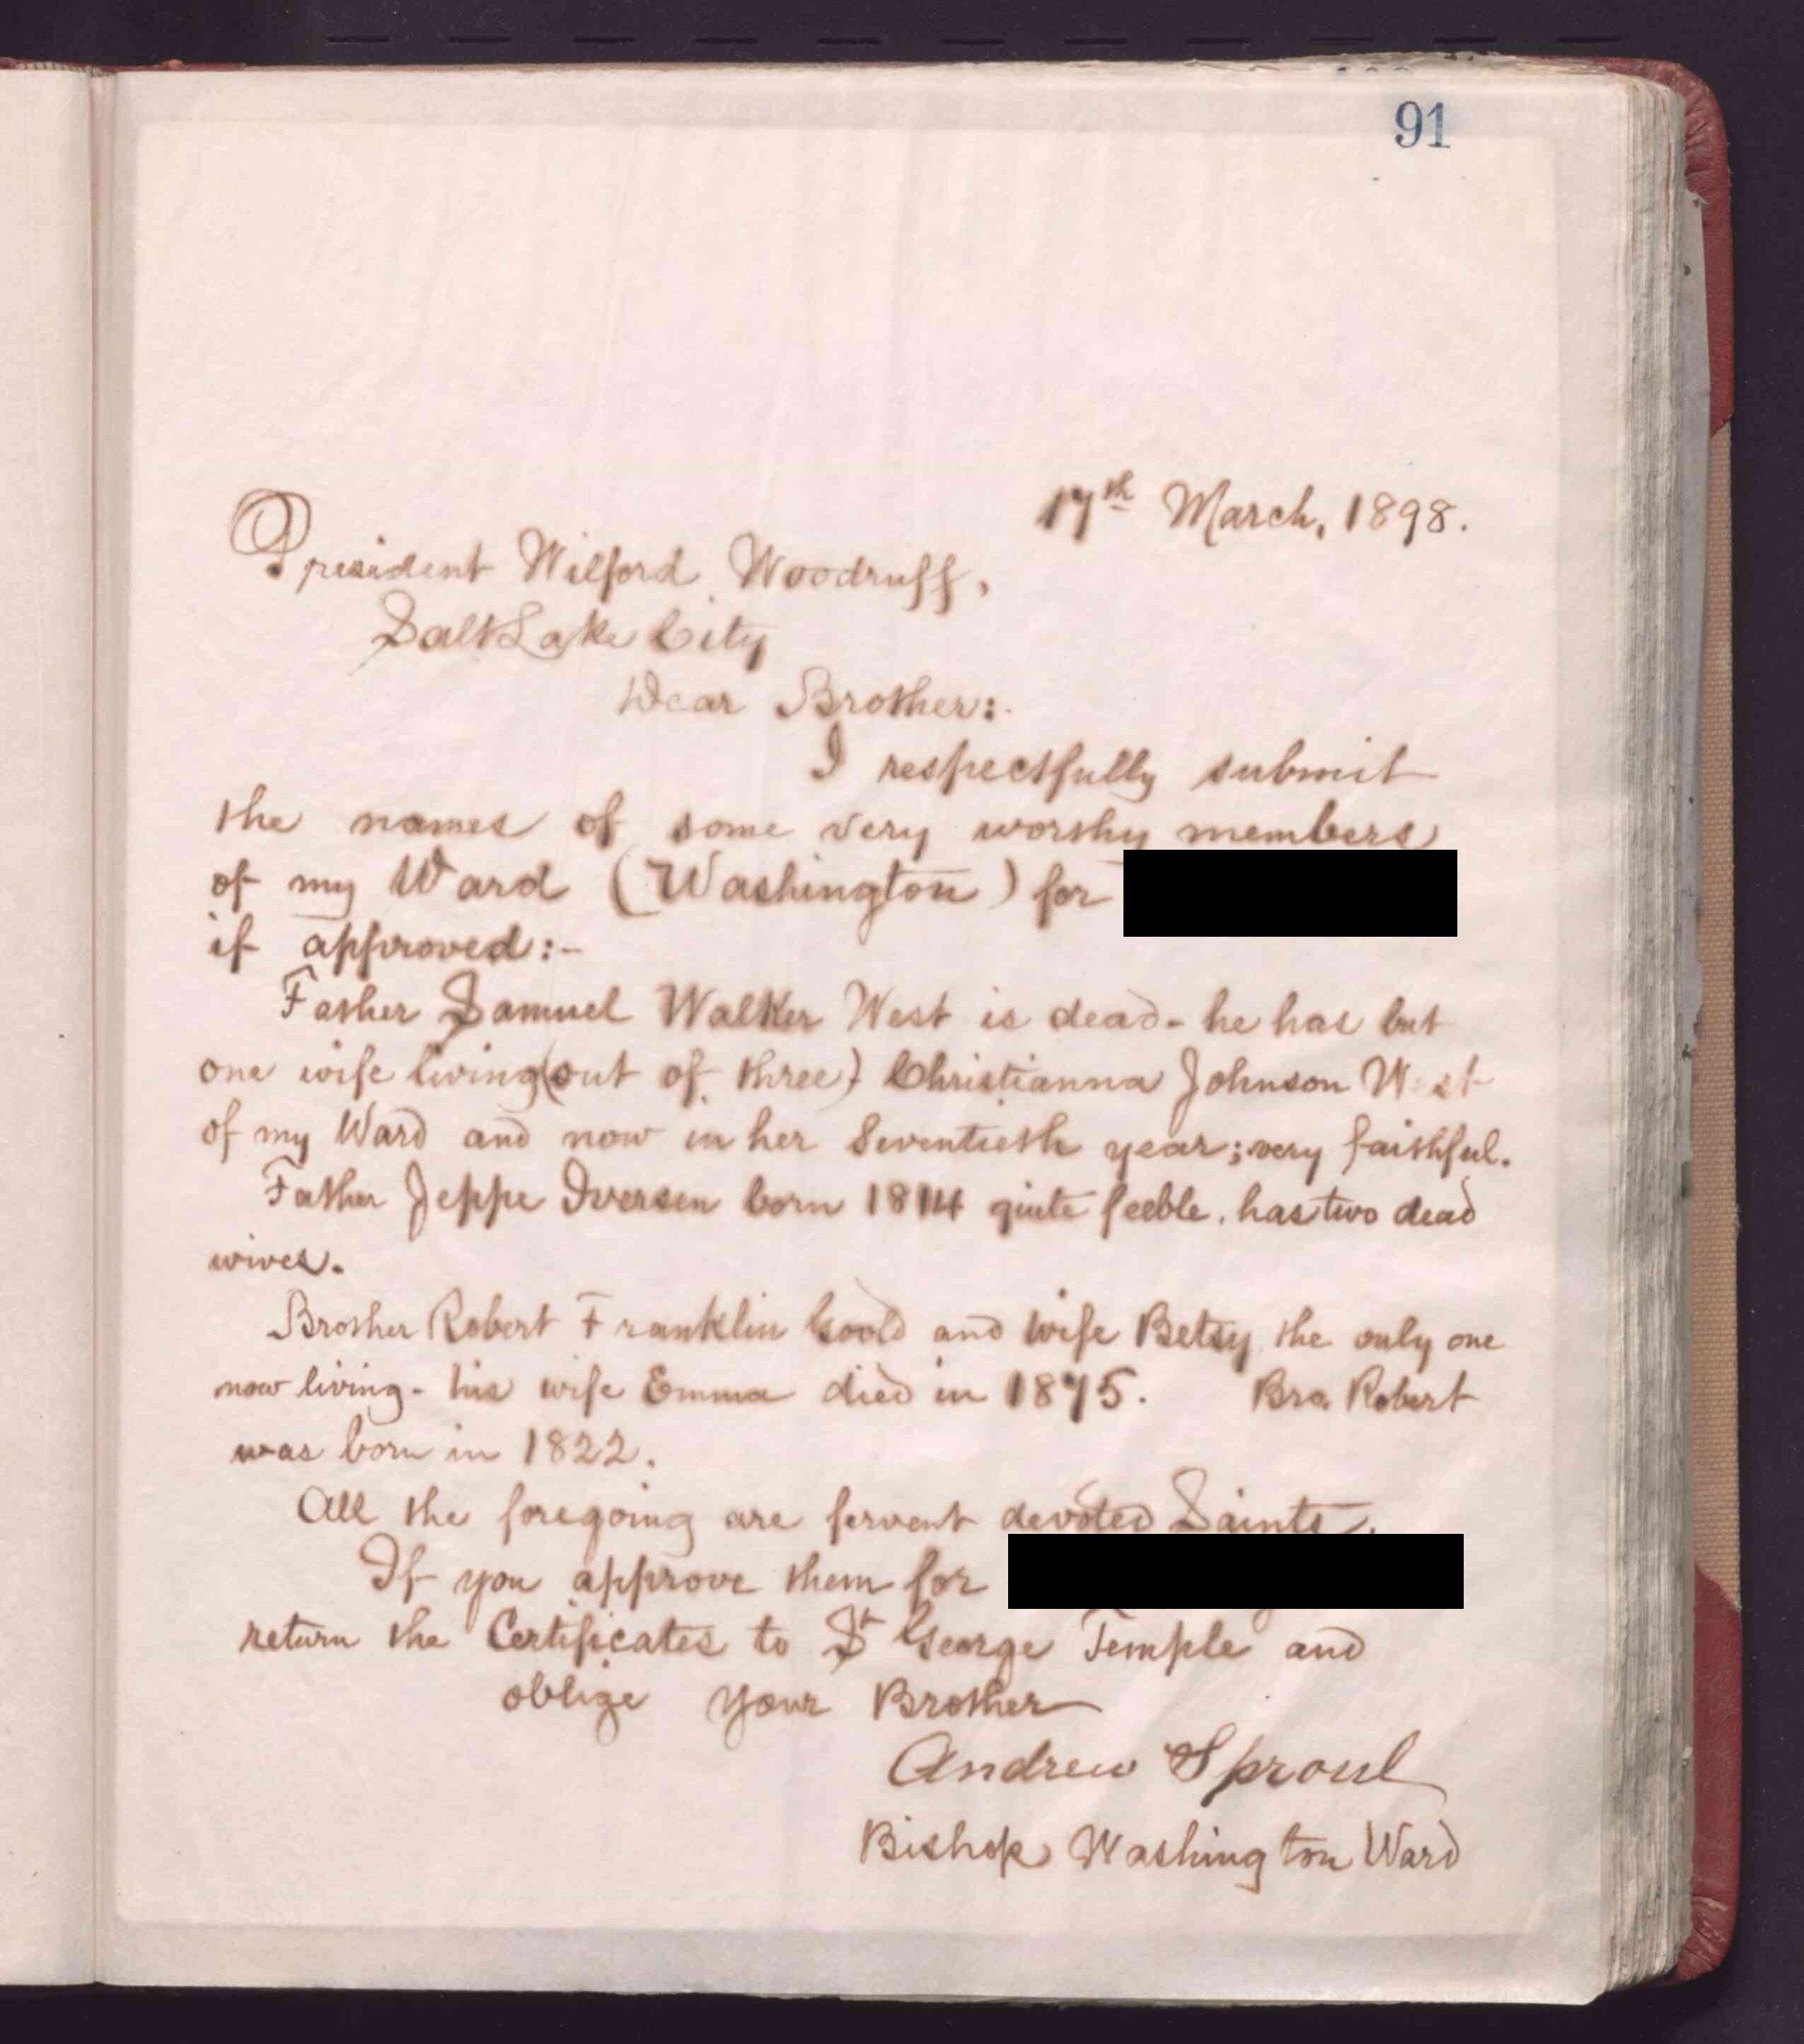 91
17th March, 1898.
President Wilford Woodruff,
Salt Lake City
Dear Brother:-
I respectfully submit
the names of some very worthy members
of my Ward (Washington) for
if approved:-
Father Samuel Walker West is dead - he has but
one wife living (out of three) Christianna Johnson West
of my Ward and now in her Seventieth year; very faithful.
Father Jeppe Iversen born 1814 quite feeble, has two dead
wives.
Brother Robert Franklin Goold and wife Betsy the only one
now living - his wife Emma died in 1875. Bro. Robert
was born in 1822.
All the foregoing are fervent devoted Saints.
If you approve them for
return the Certificates to St George Temple and
oblige your Brother
Andrew Sproul
Bishop Washington Ward